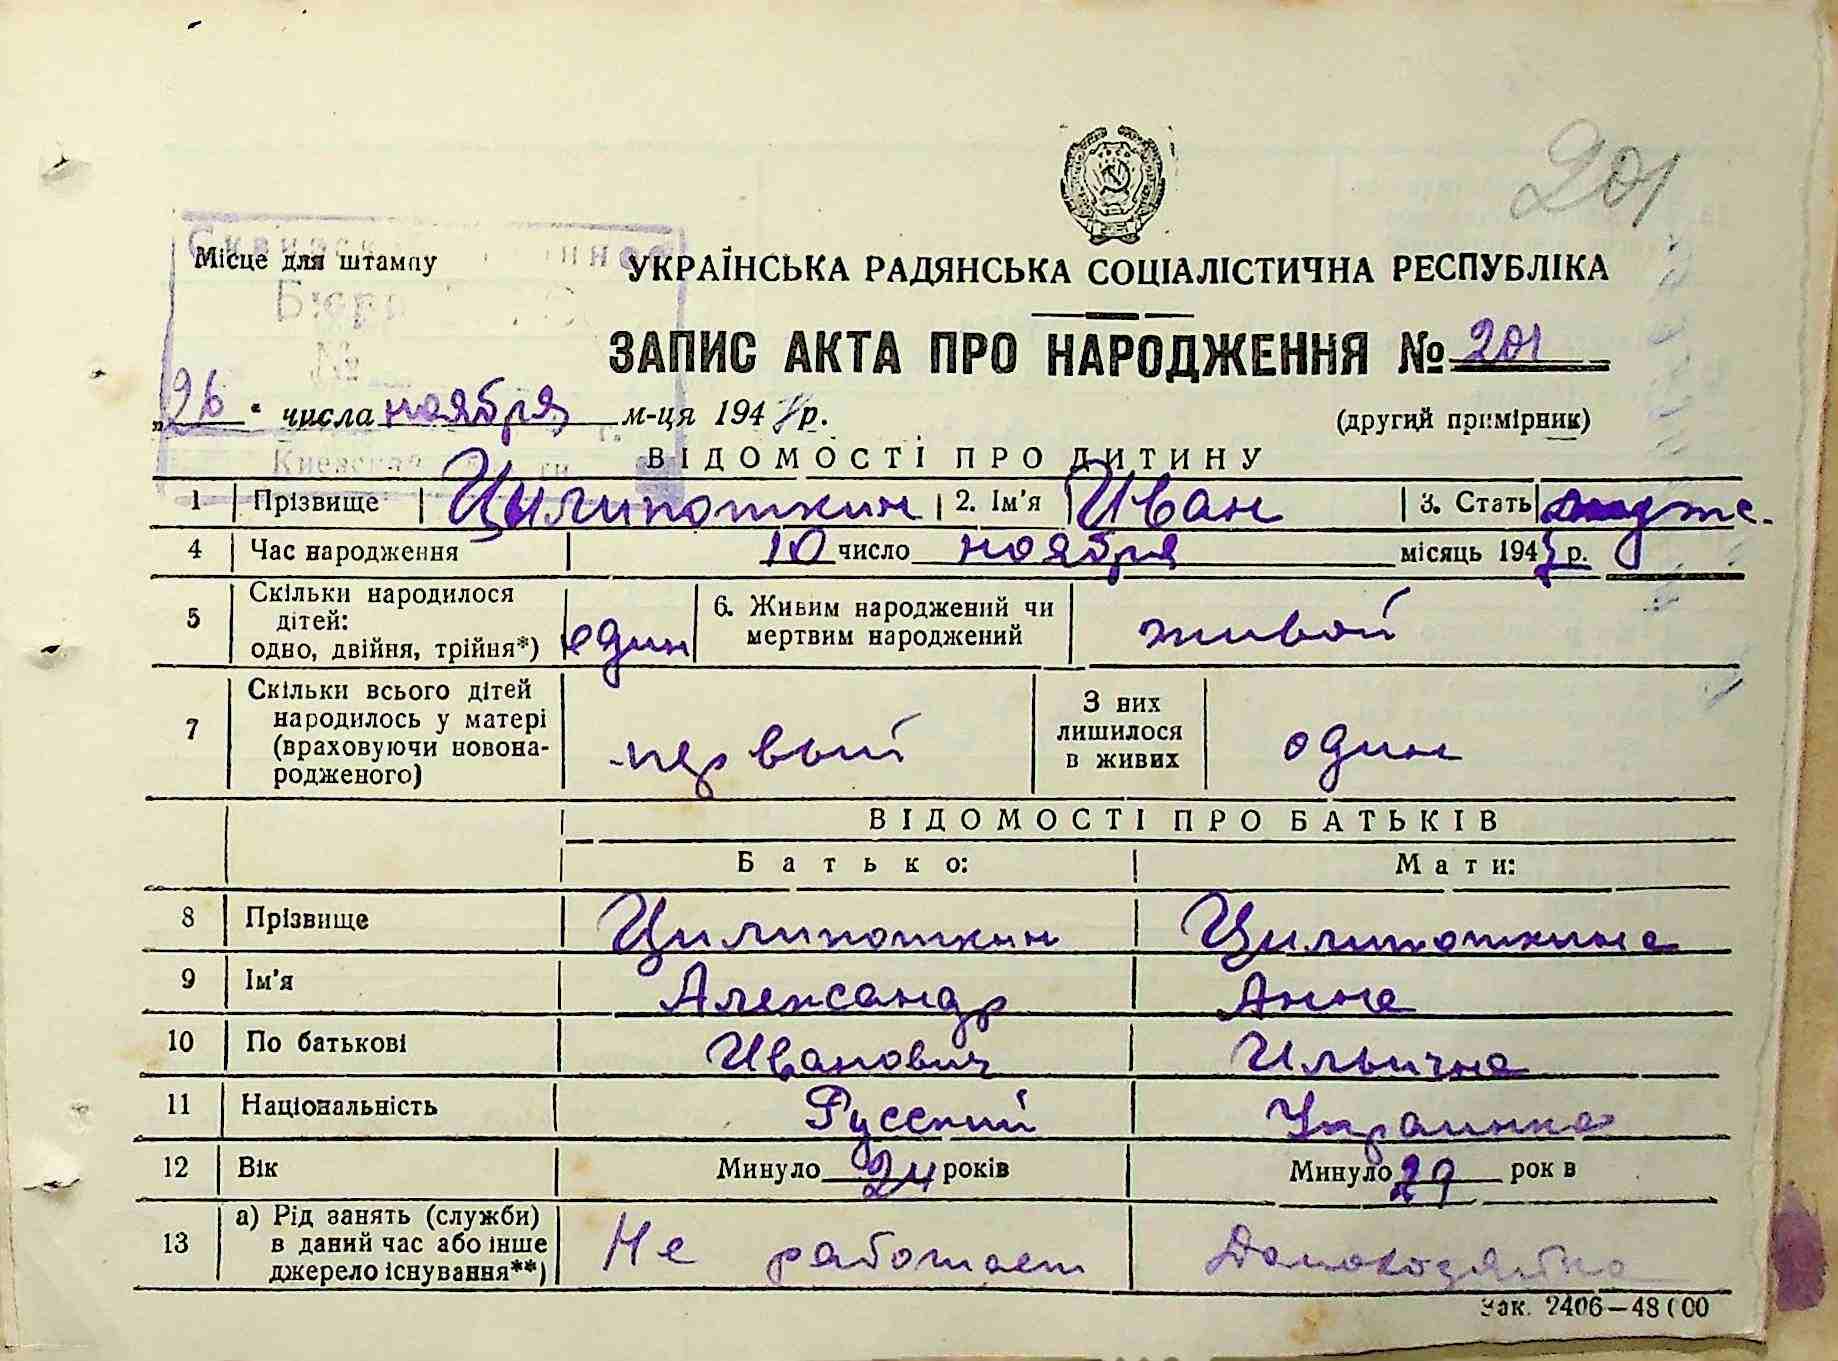 201
Місце для штампу
УКРАЇНСЬКА РАДЯНСЬКА СОЦІАЛІСТИЧНА РЕСПУБЛІКА
Бюро
ЗАПИС АКТА ПРО НАРОДЖЕННЯ № 201
„26" числа ноября м-ця 194 р.
(другий примірник)
Киевская
ВІДОМОСТІ ПРО ДИТИНУ
1 Прізвище Цилипоткин 2. Ім'я Иван 3. Стать муж.
4 Час народження 10 число ноября місяць 194 р.
5 Скільки народилося дітей: одно, двійня, трійня*) един 6. Живим народжений чи мертвим народжений живой
7 Скільки всього дітей народилось у матері (враховуючи новонародженого) первый З них лишилося в живих один
ВІДОМОСТІ ПРО БАТЬКІВ
Батько: Мати:
8 Прізвище Цилипоткин Цилипоткина
9 Ім'я Александр Анна
10 По батькові Иванович Ильична
11 Національність Русский Украинка
12 Вік Минуло 24 років Минуло 29 рок в
13 а) Рід занять (служби) в даний час або інше джерело існування**) Не работает Домохозяйка
Зак. 2406—48000